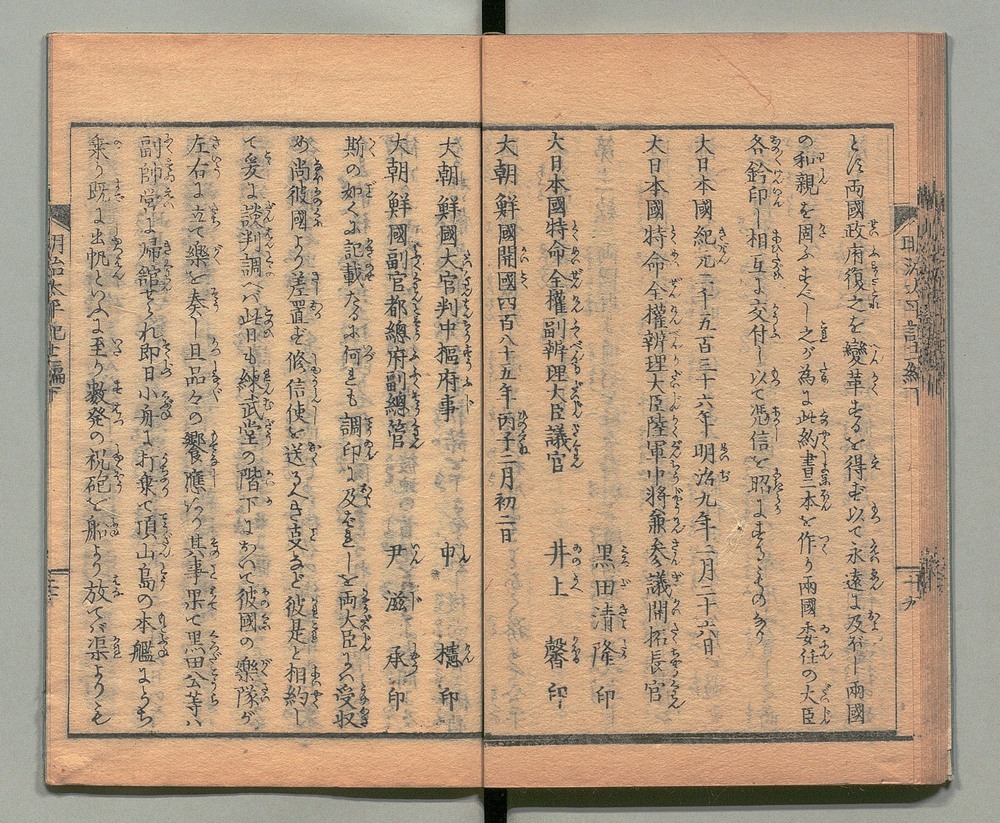 とは両國政府復之を變革するを得ず以て永遠に及ぼし兩國
の和親を固ふすべし之が為に此約書二本を作り兩國委任の大臣
各鈐印し相互に交付し以て憑信を昭にするものなり
大日本國紀元二千五百三十六年明治九年二月二十六日
大日本國特命全權辨理大臣陸軍中將兼參議開拓長官
黒田清隆 印
大日本國特命全權副辨理大臣議官 井上 馨 印
大朝鮮國開國四百八十五年丙子二月初二日
大朝鮮國大官判中樞府事 申 櫶 印
大朝鮮國副官都總府副總管 尹 滋 承 印
斯の如くに記載たるに何れも調印に及ばれしを両大臣には受収
め尚彼國より差置ず修信使を送るべき支など彼是と相約し
て爰に談判調へバ此日も練武堂の階下において彼國の樂隊が
左右に立て樂を奏し且品々の饗應ありて其事果て黒田公等ハ
副帥堂に帰舘せられ即日小舟に打乗て頂山島の本艦にうち
乗り既に出帆といふに至り数発の祝砲を船より放てバ渠よりも
明治太平記七編下